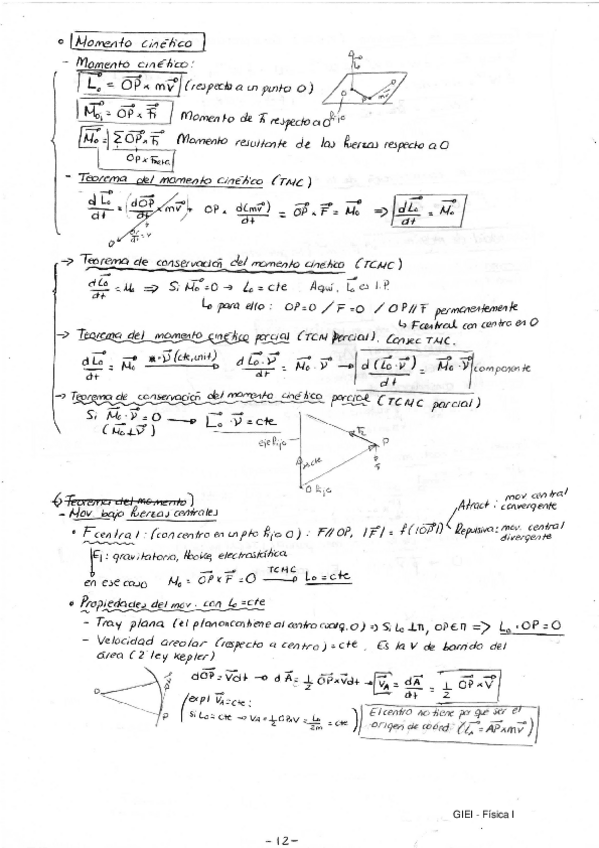 • Momento cinético
- Momento cinético:
L⃗₀ = OP⃗ × mv⃗ (respecto a un punto O)
M⃗₀ᵢ = OP⃗ × F⃗ᵢ Momento de F⃗ᵢ respecto a O fijo
M⃗₀ = ∑ OP⃗ × F⃗ᵢ Momento resultante de las fuerzas respecto a O
- Teorema del momento cinético (TMC)
dL⃗₀/dt = (dOP⃗/dt × mv⃗) + OP × d(mv⃗)/dt = OP⃗ × F⃗ = M⃗₀ ⇒ dL⃗₀/dt = M⃗₀
→ Teorema de conservación del momento cinético (TCMC)
dL⃗₀/dt = M₀ ⇒ Si M⃗₀ = 0 → L₀ = cte Aquí, L⃗₀ es I.P.
↳ para ello: OP=0 / F=0 / OP∥F permanentemente
↳ Fcentral con centro en O
→ Teorema del momento cinético parcial (TCM parcial). Consec TMC.
dL⃗₀/dt = M⃗₀ × · ν⃗ (cte, unit) → dL⃗₀ · ν⃗/dt = M⃗₀ · ν⃗ → d(L⃗₀ · ν⃗)/dt = M⃗₀ · ν⃗ componente
→ Teorema de conservación del momento cinético parcial (TCMC parcial)
Si M⃗₀ · ν⃗ = 0 → L⃗₀ · ν⃗ = cte
(M⃗₀ ⊥ ν⃗)
eje fijo
P
O fijo
Teorema del momento
- Mov bajo fuerzas centrales
Atract: mov central convergente
• F central: (con centro en un pto fijo O): F∥OP, |F⃗| = f(|OP⃗|)
Repulsiva: mov. central divergente
Ej: gravitatoria, Hooke, electrostática
en ese caso M₀ = OP⃗ × F⃗ = 0 TCMC → L₀ = cte
• Propiedades del mov. con L₀ = cte
- Tray plana (el plano contiene al centro O) ⇒ Si L₀ ⊥ π, OP ∈ π ⇒ L₀ · OP = 0
- Velocidad areolar (respecto a centro) = cte. Es la V de barrido del
área (2ª ley kepler)
dOP⃗ = v⃗dt → dA⃗ = 1/2 OP⃗ × v⃗dt → v⃗A = dA⃗/dt = 1/2 OP⃗ × v⃗
expl v⃗A = cte:
Si L₀ = cte → vA = 1/2 OP × v = L₀/2m = cte
El centro no tiene por qué ser el
origen de coord (L⃗ₐ = AP⃗ × mv⃗)
GIEI - Física I
- 12 -